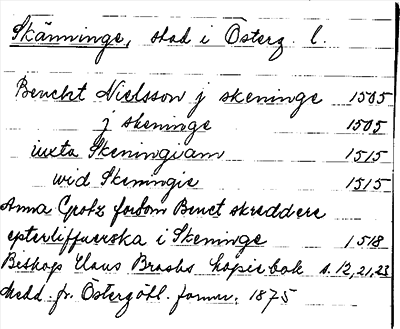 Skänninge, stad i Österg. l.
Benckt Nielsson j skeninge 1505
j skeninge 1505
iuxta Skeningiam 1515
wid Skeningie 1515
Anna Grotz fordom Benct skreddere
epterliffuerska i Skeninge 1518
Biskop Claus Brasks kopiebok s. 12,21,23
Medd. fr. Östergötl. fornm. 1875